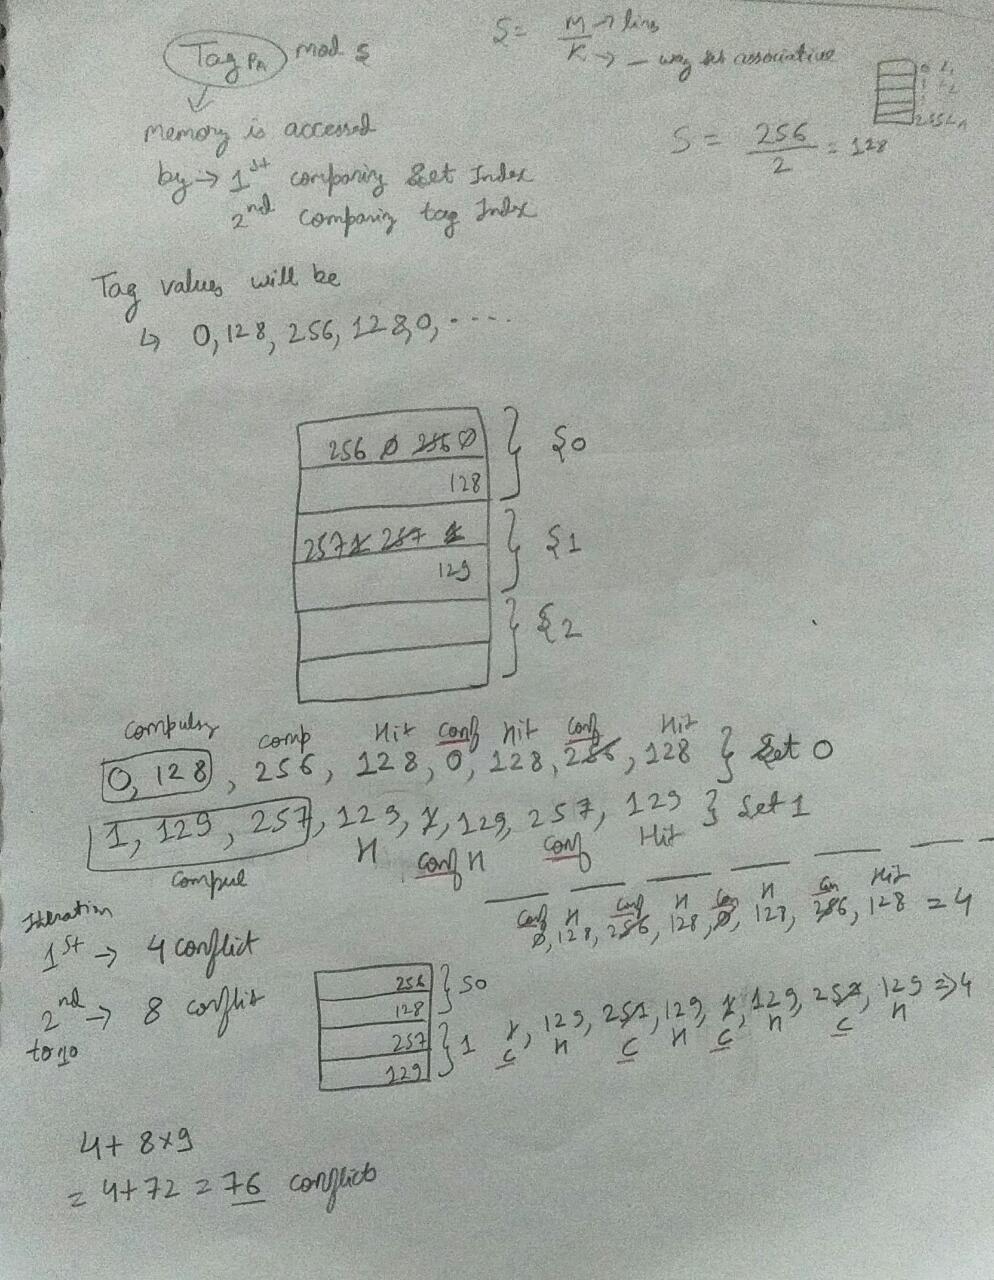 Tag PA mod S
S = M → lines
K → - way set associative
memory is accessed
by → 1st comparing Set Index
2nd comparing tag Index
S = 256 / 2 = 128
Tag values will be
↳ 0, 128, 256, 128, 0, ....
256 0 256 0 } S0
128
257 1 257 1 } S1
129
} S2
compulsy comp Hit conf hit conf Hit
0, 128, 256, 128, 0, 128, 256, 128 } Set 0
1, 129, 257, 129, 1, 129, 257, 129 } Set 1
H conf H conf Hit
compul
Conf H conf H Con H Con Hit
0, 128, 256, 128, 0, 128, 256, 128 = 4
Iteration
1st → 4 conflict
2nd → 8 conflit
to 10
256 } S0
128
257 } 1
129
1, 129, 257, 129, 1, 129, 257, 129 => 4
C H C H C H C H
4 + 8x9
= 4+72 = 76 conflicts